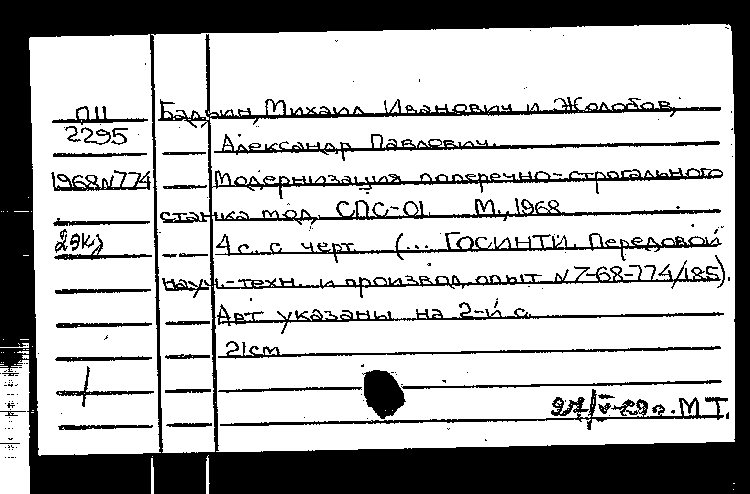 П11 Бадкин, Михаил Иванович и Жолобов,
2295 Александр Павлович.
1968N774 Модернизация поперечно-строгального
станка мод. СПС-01. М., 1968
2экз 4 с. с черт. (... ГОСИНТИ. Передовой
научн.-техн. и производ. опыт N 7-68-774/185).
Авт. указаны на 2-й с.
21 см
М.Т.